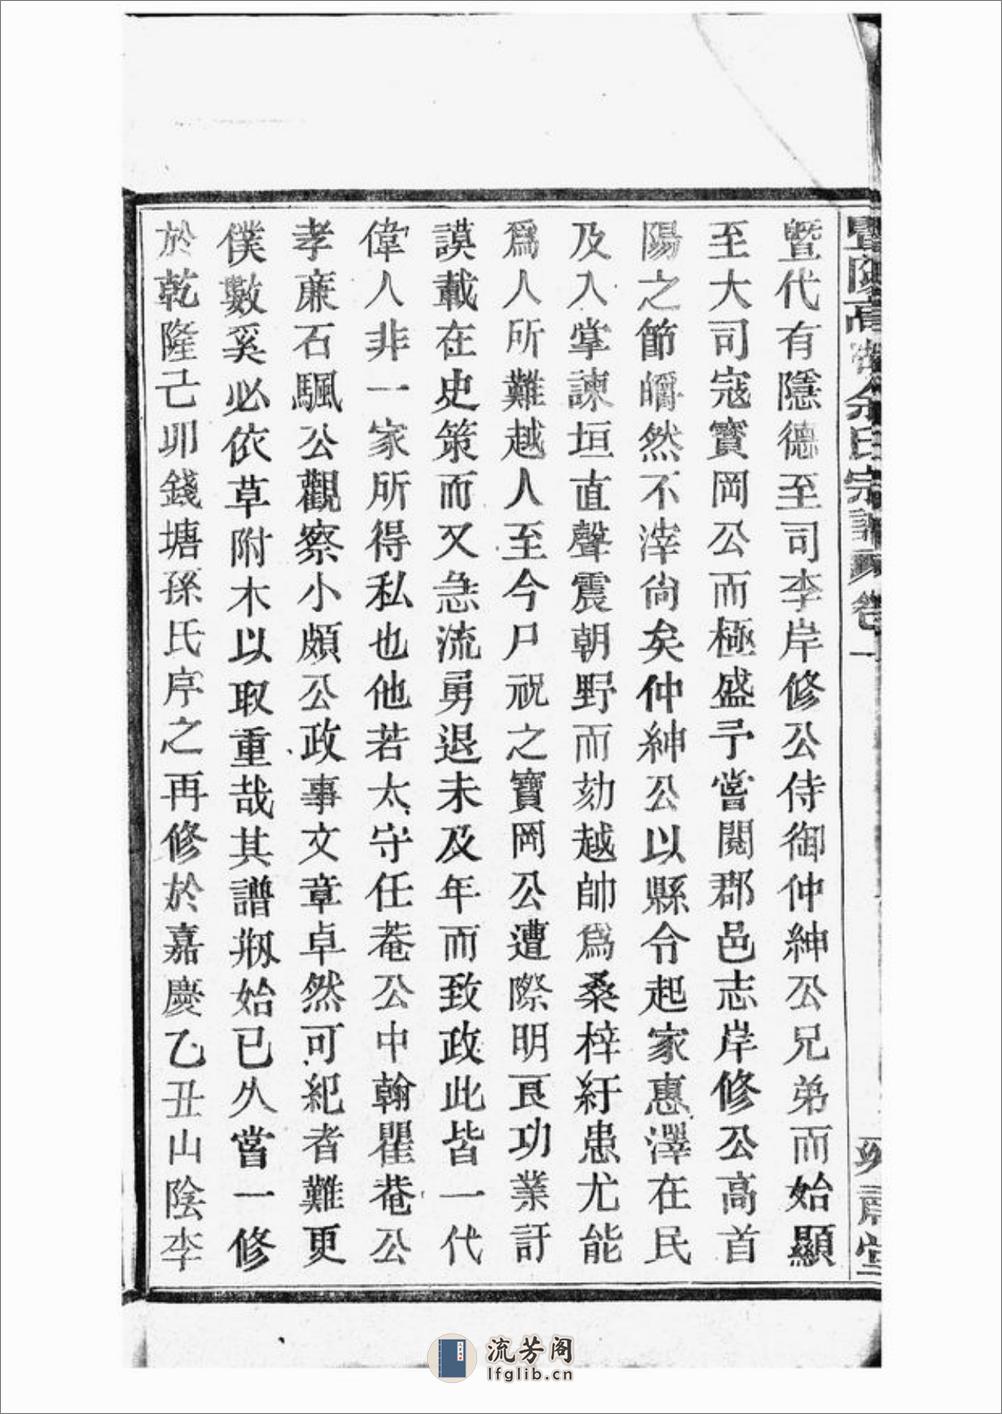 暨陽高湖余氏宗譜 卷一
暨代有隱德至司李岸修公侍御仲紳公兄弟而始顯
至大司寇寶岡公而極盛予嘗閱郡邑志岸修公高首
陽之節皭然不滓尙矣仲紳公以縣令起家惠澤在民
及入掌諫垣直聲震朝野而劾越帥爲桑梓紓患尤能
爲人所難越人至今尸祝之寶岡公遭際明良功業訏
謨載在史策而又急流勇退未及年而致政此皆一代
偉人非一家所得私也他若太守任菴公中翰瞿菴公
孝廉石颿公觀察小頗公政事文章卓然可紀者難更
僕數奚必依草附木以取重哉其譜剏始已久嘗一修
於乾隆己卯錢塘孫氏序之再修於嘉慶乙丑山陰李
流芳阁
lfglib.cn